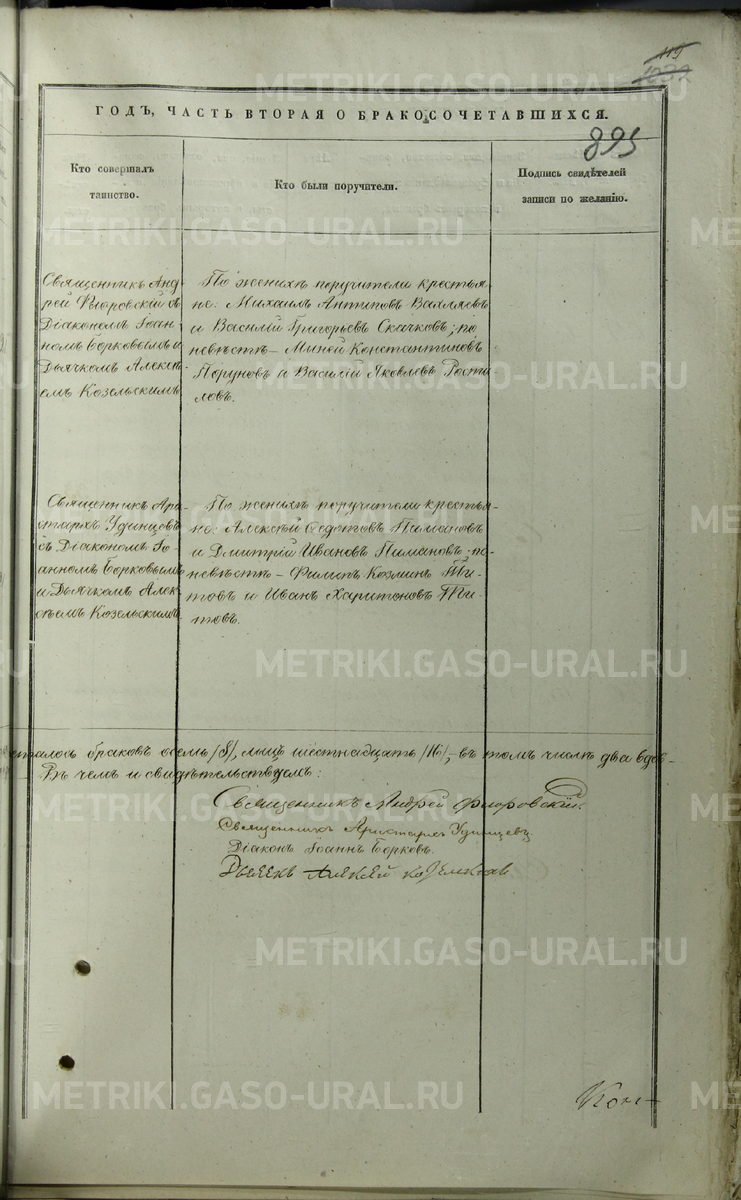 119
1032
ГОДЪ, ЧАСТЬ ВТОРАЯ О БРАКОСОЧЕТАВШИХСЯ.
895
Кто совершалъ
таинство.
Кто были поручители.
Подпись свидѣтелей
записи по желанію.
Священникъ Анд-
рей Флоровскій съ
Діакономъ Іоан-
номъ Борковымъ и
Дьячкомъ Алексѣ-
емъ Козельскимъ
По женихѣ поручители крестья-
не: Михаилъ Антиповъ Вахляевъ
и Василій Григорьевъ Скачковъ; по
невѣстѣ – Миней Константиновъ
Поруновъ и Василій Яковлевъ
ловъ.
Священникъ Ари-
стархъ Удинцовъ
съ Діакономъ Іо-
анномъ Борковымъ
и Дьячкомъ Алек-
сѣемъ Козельскимъ
По женихѣ поручители крестья-
не: Алексѣй Пимановъ
и Дмитрій Ивановъ Пимановъ; по
невѣстѣ – Филипъ Козминъ Ти-
товъ и Иванъ Харитоновъ Ти-
товъ.
браковъ осемь /8/, лицъ шестнадцать /16/, – въ томъ числѣ два вдов-
Въ чемъ и свидѣтельствуемъ:
Священникъ Андрей Флоровскій.
Священникъ Аристархъ Удинцевъ
Діаконъ Іоаннъ Борковъ.
Дьячекъ Алексѣй
METRIKI.GASO-URAL.RU